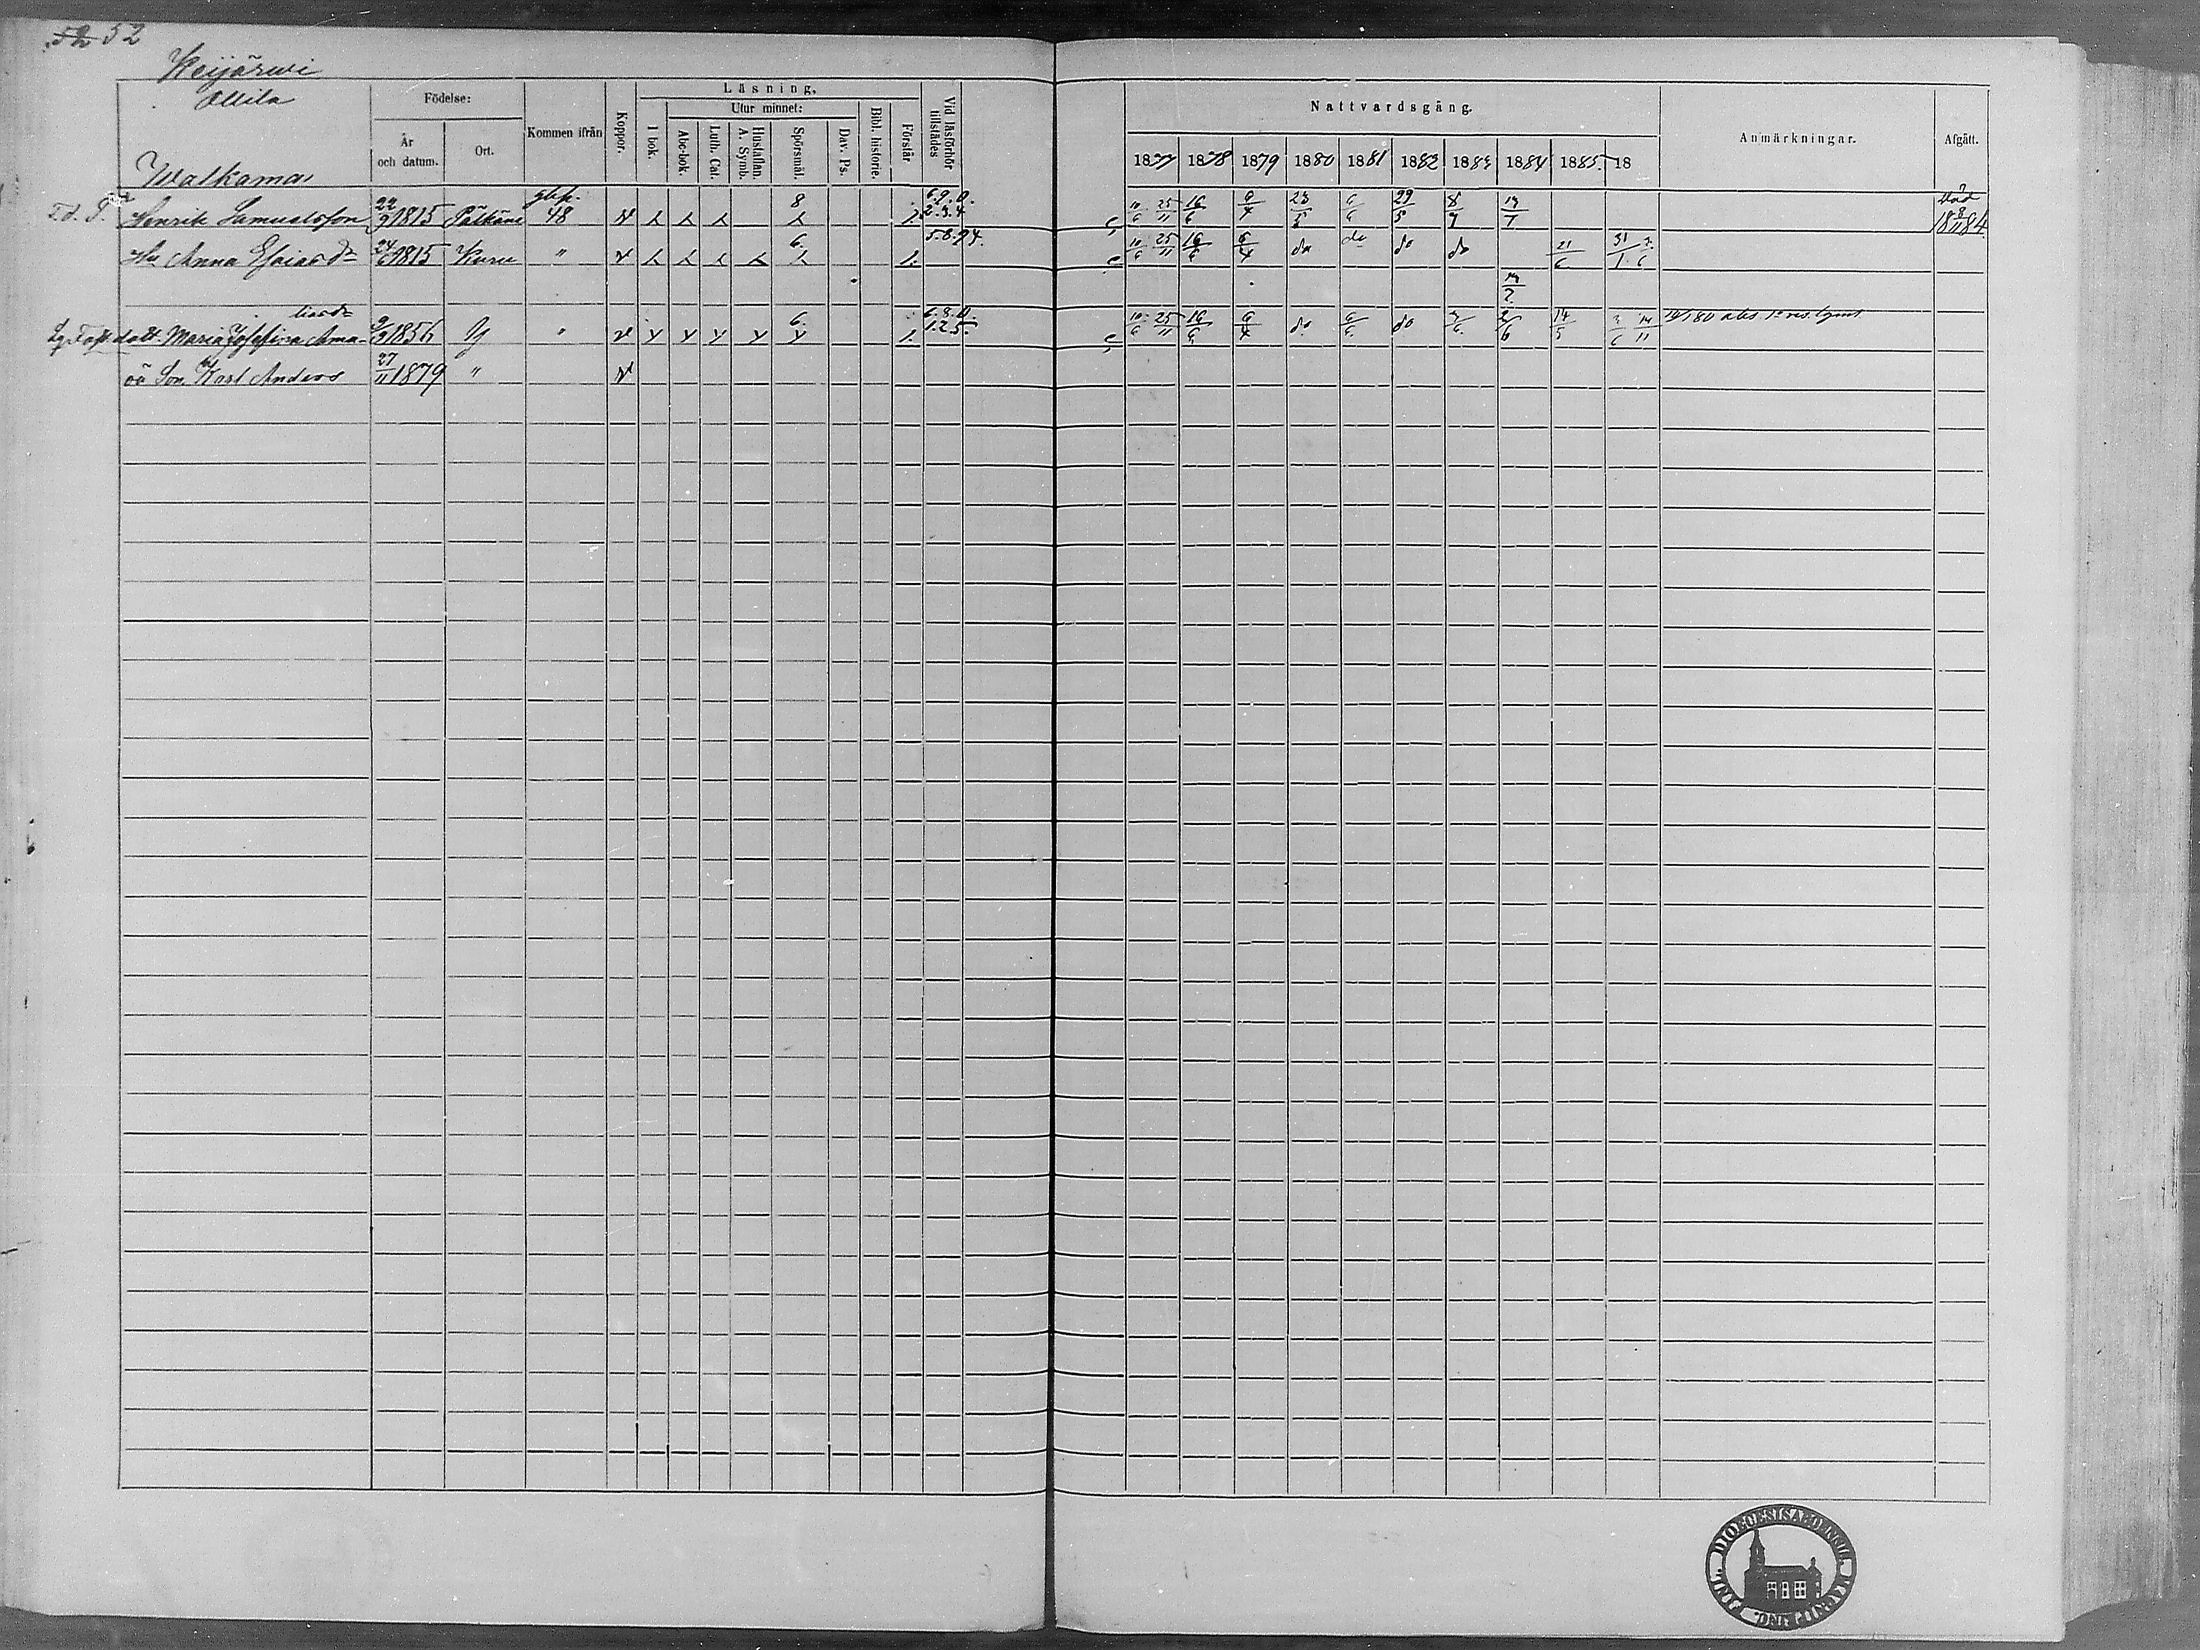 52 52
Weijärwi
Ollila
Walkama
Födelse:
År och datum.
Ort.
Kommen ifrån
Koppor.
Läsning.
I bok.
Utur minnet:
Abc-bok.
Luth. Cat.
Hustaflan. A. Symb.
Spörsmål.
Dav. Ps.
Bibl. historie.
Förstår.
Vid läsförhör tillstädes
Nattvardsgång.
1877 1878 1879 1880 1881 1882 1883 1884 1885 18
Anmärkningar.
Afgått.
F.d. T. Henrik Samuelsson 22/9 1815 Pälkäne gbk. 48 8 1. 6.9.0. 2.3.4 10/6 25/11 16/6 6/4 23/5 6/6 29/5 8/7 13/7 Död 8/11 1884
Hu Anna Esaiasdr 24/6 1815 Kuru " 6. 1. 5.8.94. 10/6 25/11 16/6 6/4 do do do do 21/6 31/1
liasdr
dott. Maria Josefina Ama- 9/9 1856 Y " 6. 1. 6.8.0 1.2.5. 10/6 25/11 16/6 6/4 do 6/6 do 14/5
oä Son Karl Anders 27/11 1879 "